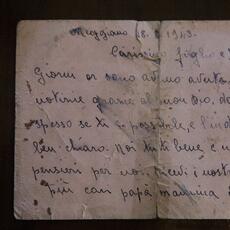 18. 8. 1943.
Carissimo figlio e
Giorni or sono abbiamo avuto
notizie grazie al buon Dio, do
spesso se ti è possibile, e l'ind
ben chiaro. Noi tutti bene e n
pensieri per noi. Ricevi i nostri
più cari papà mamma